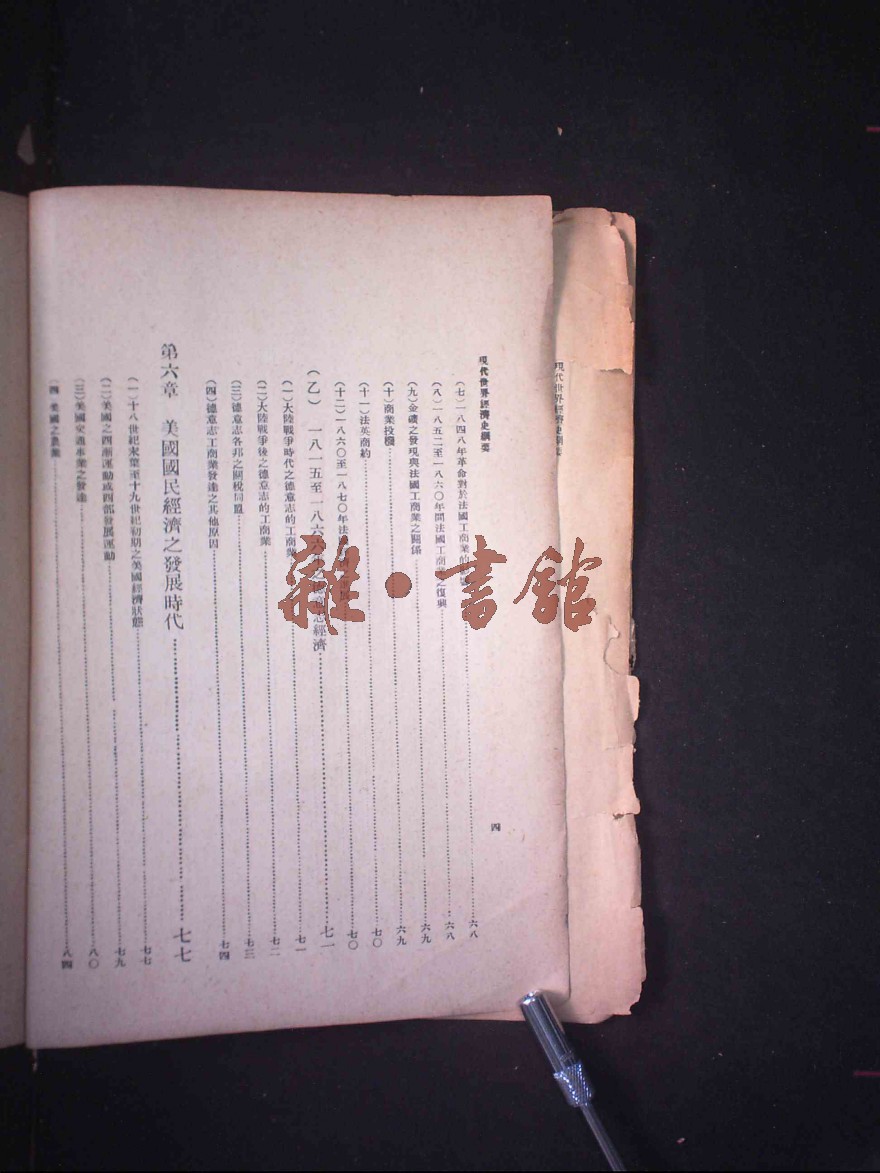 現代世界經濟史綱要
現代世界經濟史綱要
四
(七)一八四八年革命對於法國工商業的……六八
(八)一八五二至一八六〇年間法國工商業之復興……六八
(九)金礦之發現與法國工商業之關係……六九
(十)商業投機……六九
(十一)法英商約……七〇
(十二)一八六〇至一八七〇年法……七〇
(乙) 一八一五至一八六六年之德意志經濟……七一
(一)大陸戰爭時代之德意志的工商業……七一
(二)大陸戰爭後之德意志的工商業……七二
(三)德意志各邦之關稅同盟……七三
(四)德意志工商業發達之其他原因……七四
第六章 美國國民經濟之發展時代……七七
(一)十八世紀末葉至十九世紀初期之美國經濟狀態……七七
(二)美國之西漸運動或西部發展運動……七九
(三)美國交通事業之發達……八〇
(四)美國之農業……八四
雜·書館